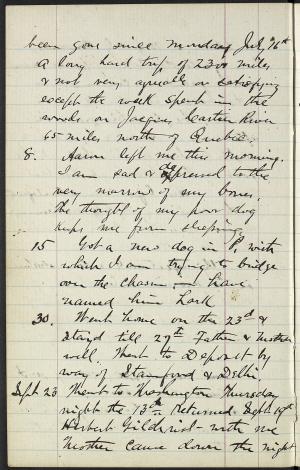 been gone since Monday July 16th
A long hard trip of 2300 miles
& not very agreeable or satisfying
except the week spent in the
woods on Jacques Cartier River
65 miles north of Quebec.
8. Aaron left me this morning.
I am sad & depressed to the
very marrow of my bones.
The thought of my poor dog
keeps me from sleeping.
15 Got a new dog in P. with
which I am trying to bridge
over the chasm — have
named him Lark
30. Went home on the 23d &
stayd till 27th Father & Mother
well. Went to Deposit by
way of Stamford & Delhi.
Sept 23 Went to Washington Thursday
night the 13th. Returned Sept 19th
Herbert Gildersl with me
Mother came down the night